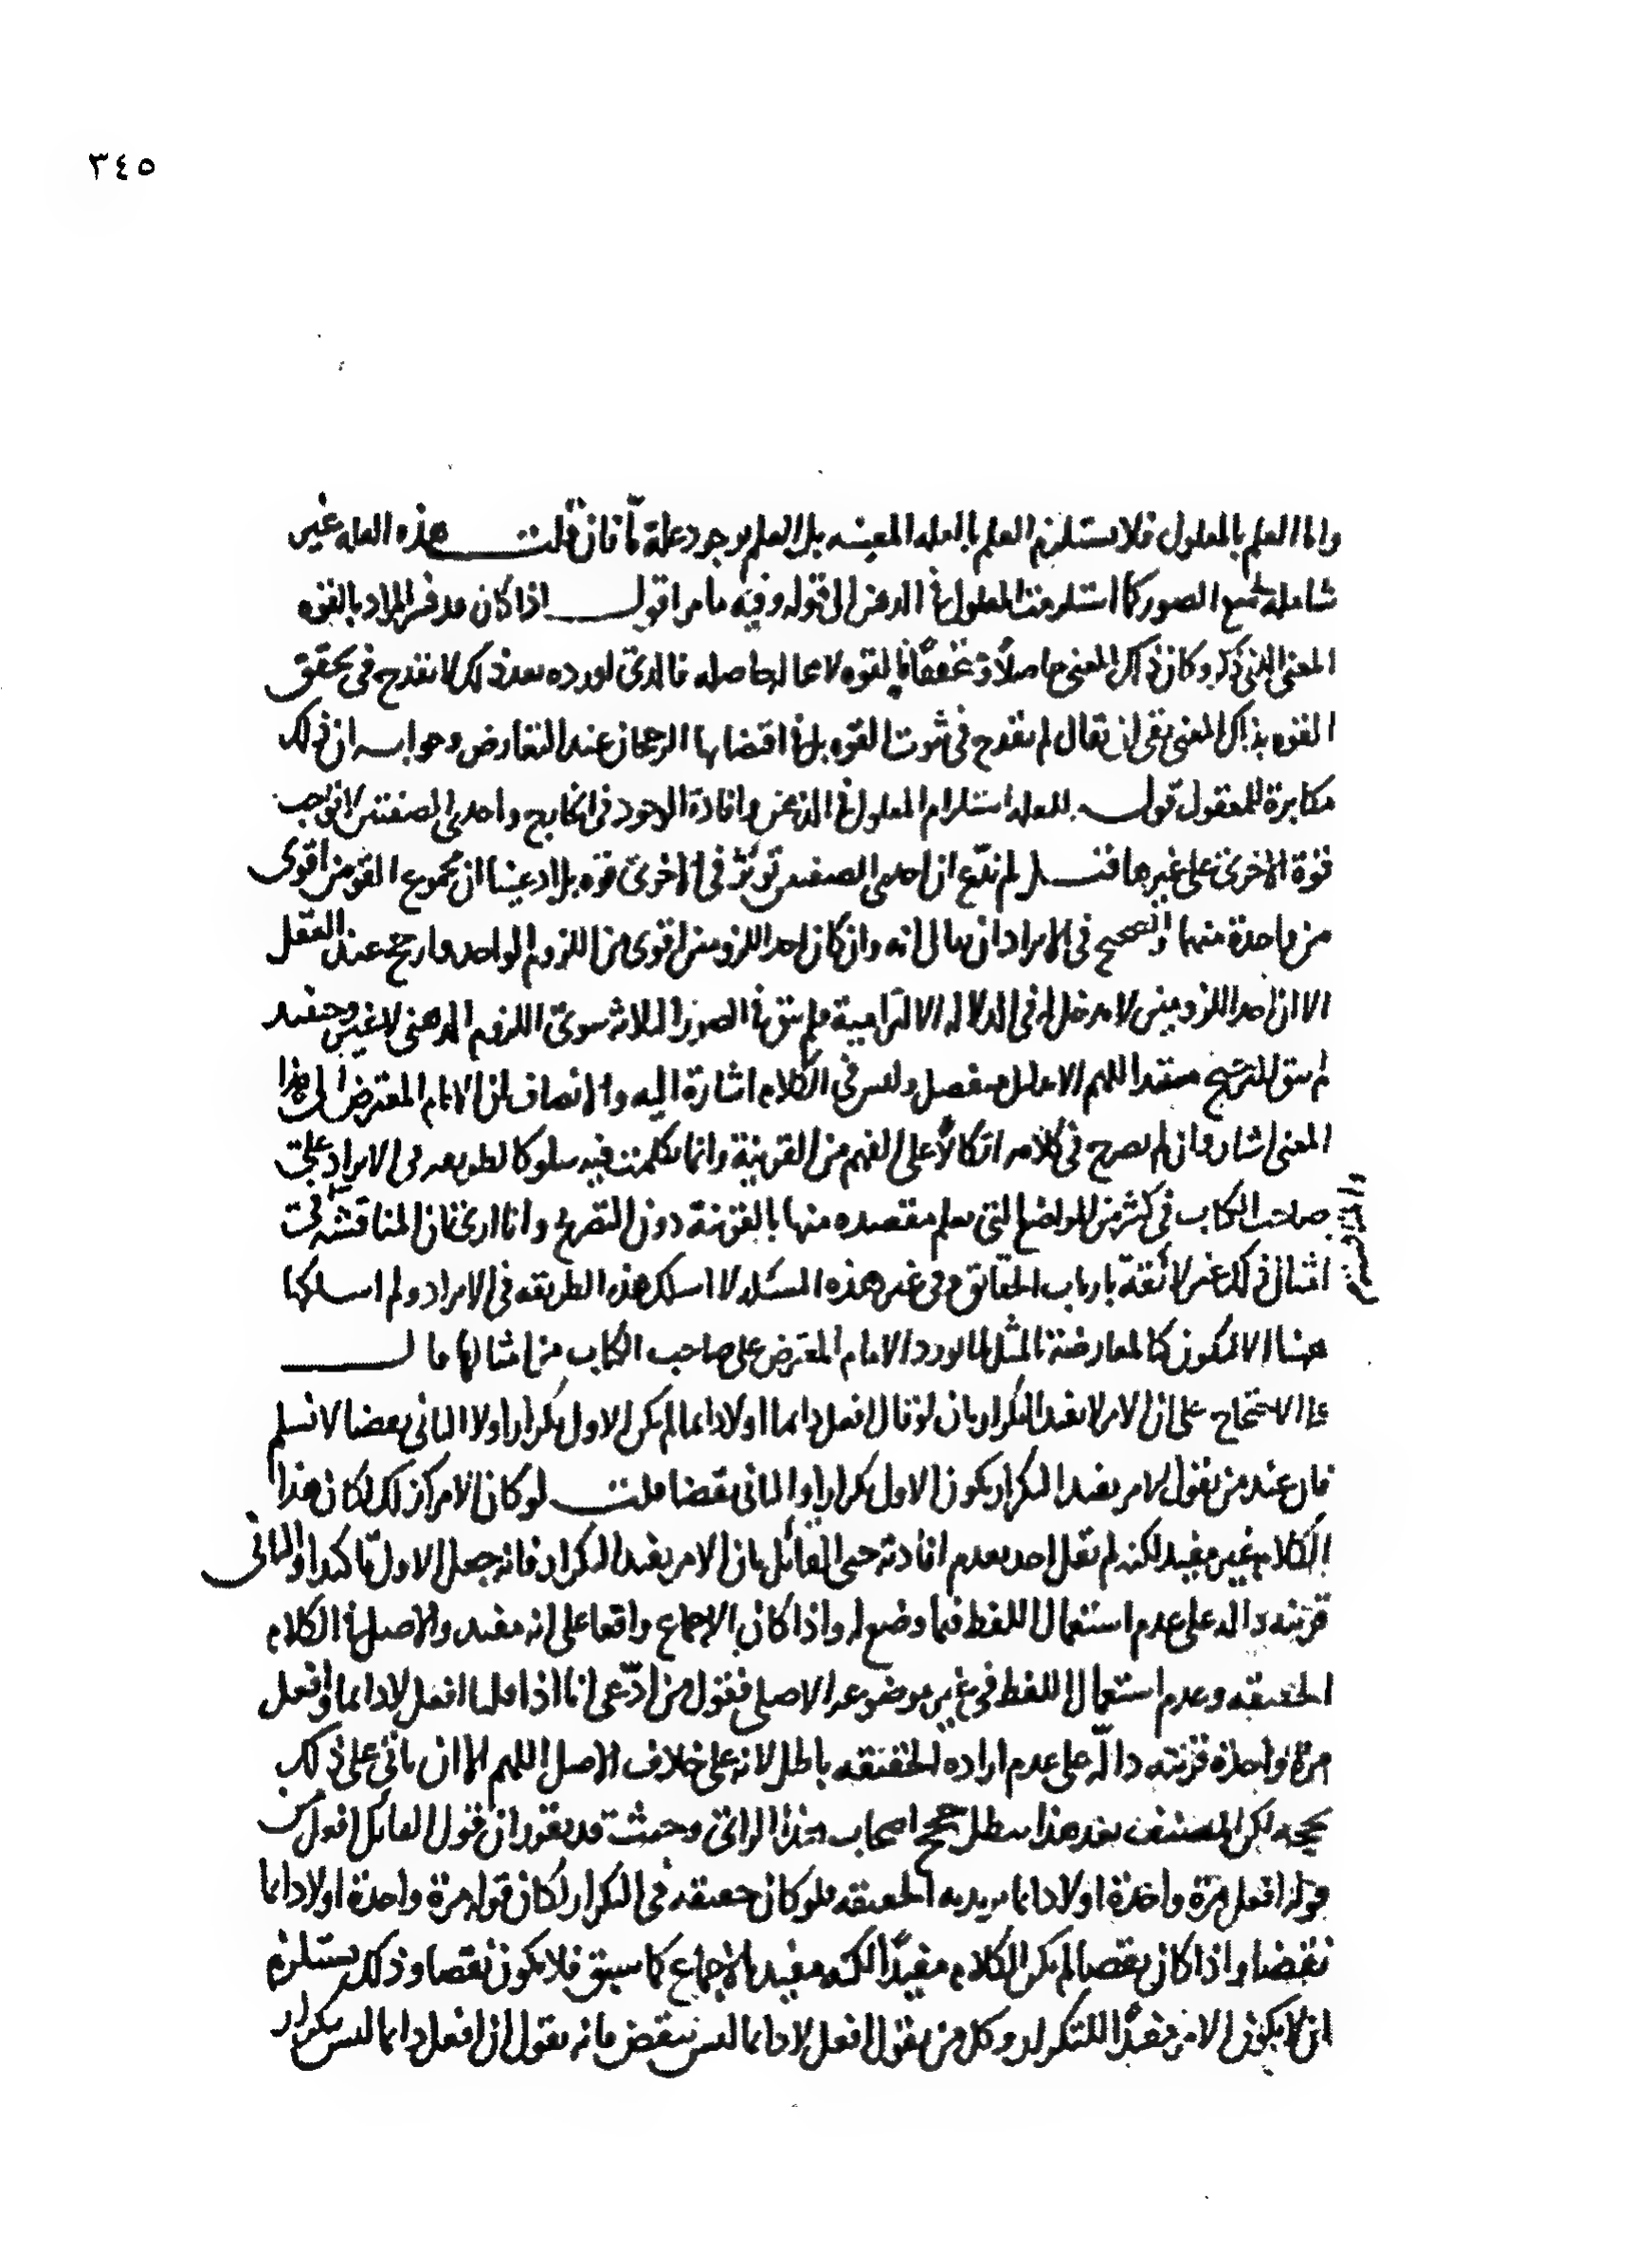 ٣٤٥
واما العلم بالمعلول فلا يستلزم العلم بالعله المعينه بل العلم بوجود علة ما فان قلت هذه العله غير
شامله لجميع الصور كما استلزمت المعلول في الذهن الى قوله وفيه ما مر اقول اذا كان مدفر المراد بالقوه
المعنى الذي ذكر وكان ذلك المعنى حاصلا بالقوه لا محاله حاصله فالذي اورده بعد ذلك لا يقدح في تحقق
القوه بذاك المعنى بقي ان يقال لم يقدح في ثبوت القوه بل في اقتضايها الرجحان عند التعارض وجوابه ان ذلك
مكابرة للمعقول قوله للعله استلزام المعلول في الذهن وافادة الوجود في الخارج واحدى الصفتين لا توجب
قوة الاخرى على غيرها قلت لم ندّع ان احدى الصفتين توثر في الاخرى قوه بل ادعينا ان مجموع القوتين اقوى
من واحدة منهما والصحيح في الايراد ان يقال انه وان كان احد اللزومين اقوى من اللزوم الواحد وارجح عند العقل
الا ان احد اللزومين لا مدخل له في الدلاله الالتزامية فلم يبق في الصور الثلاثه سوى اللزوم الذهني لا غير وحينئذ
لم يبق للترجيح مستند اللهم الا بدليل منفصل وليس في الكلام اشارة اليه والانصاف ان الامام المعترض الى هذا
المعنى اشار وان لم يصرح في كلامه اتكالا على الفهم من القرينة وانما تكلمت فيه سلوكا لطريقه في الايراد على
صاحب الكتاب في كثير من المواضع التي يعلم مقصده منها بالقرينة دون التصريح وانا ارى ان المناقشه في
امثال ذلك غير لائقة بارباب الحقايق وفي غير هذه المسئله لا اسلك هذه الطريقه في الايراد ولم اسلكها
هنا الا لتكون كالمعارضة بالمثل لما اورد الامام المعترض على صاحب الكتاب من امثالها قال
في الاحتجاج على ان الامر لا يفيد التكرار بان لو قال افعل دايما اولا دايما لم يكن الاول تكرارا ولا الثاني بعضا لا نسلم
فان عند من يقول الامر يفيد التكرار يكون الاول تكرارا والثاني نقضا قلت لو كان الامر كذلك لكان هذا
الكلام غير مفيد لكنه لم يقل احد بعدم افادته حتى القائل بان الامر يفيد التكرار فانه جعل الاول تاكيدا والثاني
قرينه داله على عدم استعمال اللفظ فيما وضع له واذا كان الاجماع واقعا على انه مفيد والاصل في الكلام
الحقيقه وعدم استعمال اللفظ في غير موضوعه الاصلي فقول من ادّعى انا اذا قلنا افعل لا دايما وافعل
مرة واحدة قرينه دالّه على عدم اراده الحقيقه باطل لانه على خلاف الاصل اللهم الا ان ياتي على ذلك
بحجه لكن المصنف بعد هذا يبطل حجج اصحاب هذا الراي وحيث قد تقرر ان قول القائل افعل
قوله افعل مرة واحدة او لا دايما يريد به الحقيقه فلو كان حقيقه في التكرار لكان قوله مرة واحدة او لا دايما
نقضا واذا كان نقضا لم يكن الكلام مفيدا لكنه مفيد بالاجماع كما سبق فلا يكون نقضا وذلك يستلزم
ان لا يكون الامر مفيدا للتكرار وكل من يقول افعل لا دايما ليس بنقض فانه يقول ان افعل دايما ليس بتكرار